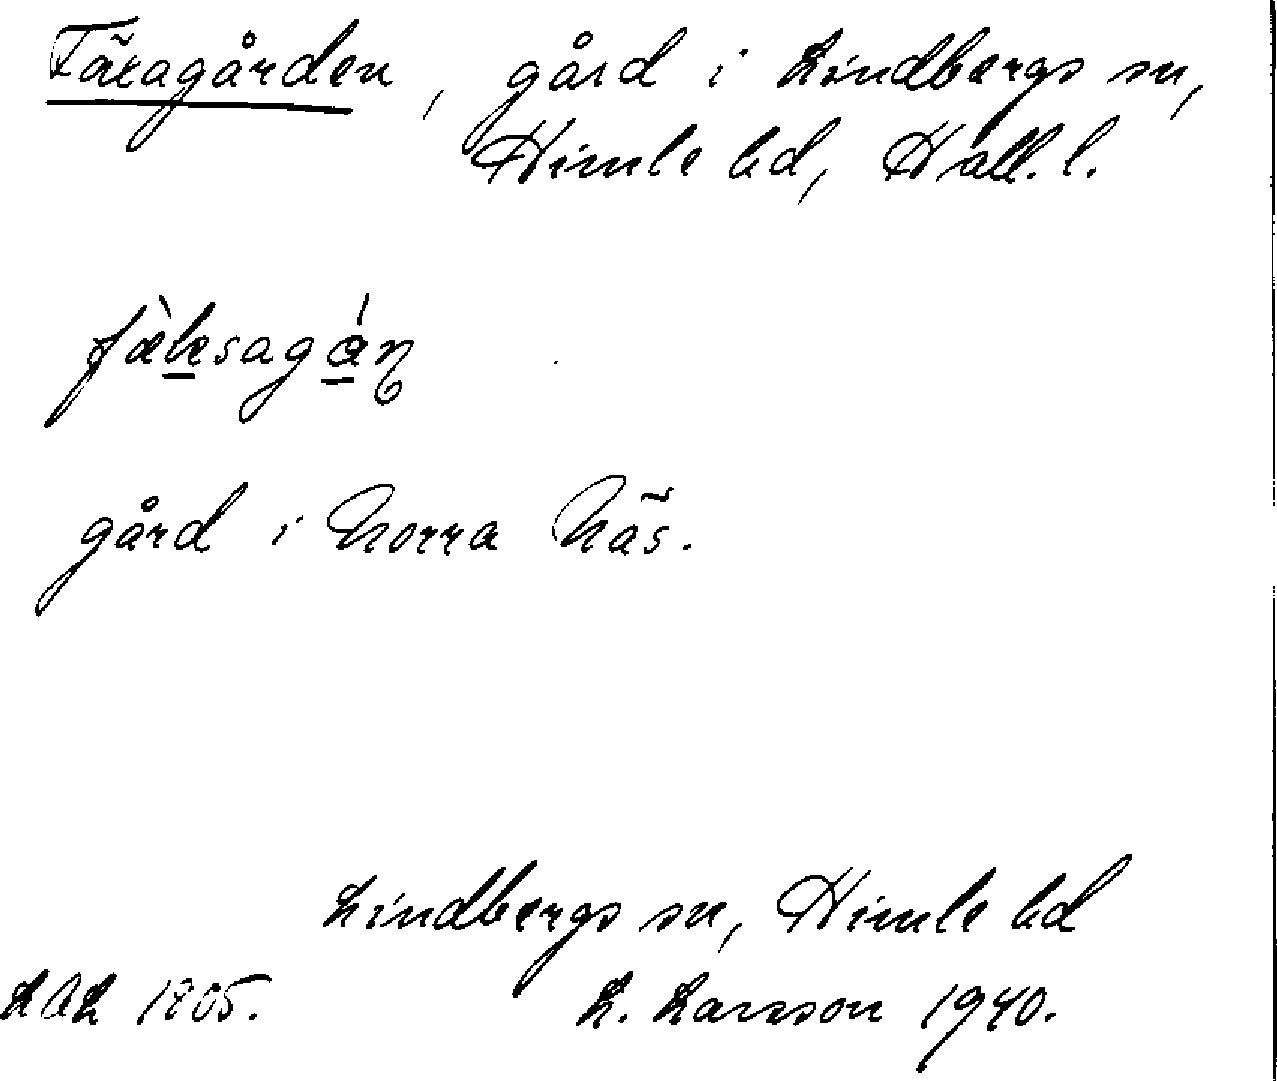 Fäxagården, gård i Lindbergs sn,
Himle hd, Hall. l.
gård i Norra Näs.
Lindbergs sn, Himle hd
1805. L. Larsson 1940.